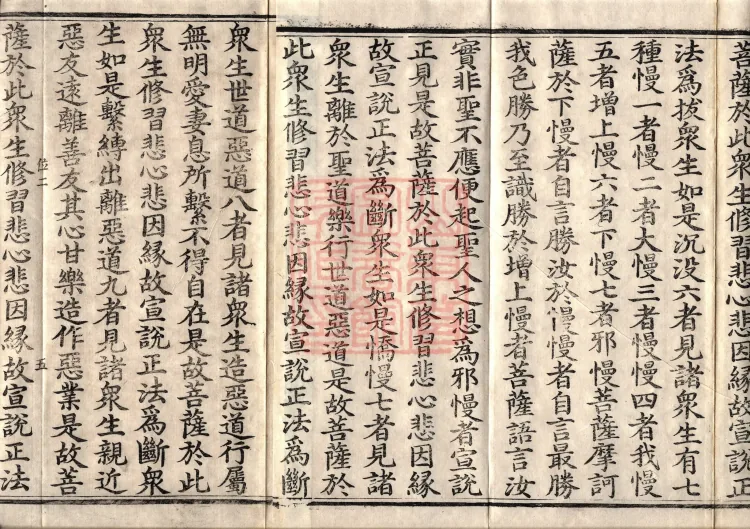 菩薩於此衆生修習悲心悲因縁故宣說正
法爲拔衆生如是沉没六者見諸衆生有七
種慢一者慢二者大慢三者慢慢四者我慢
五者增上慢六者下慢七者邪慢菩薩摩訶
薩於下慢者自言勝汝於慢慢者自言最勝
我色勝乃至識勝於增上慢者菩薩語言汝
實非聖不應便起聖人之想爲邪慢者宣說
正見是故菩薩於此衆生修習悲心悲因縁
故宣說正法爲斷衆生如是憍慢七者見諸
衆生離於聖道樂行世道惡道是故菩薩於
此衆生修習悲心悲因縁故宣說正法爲斷
衆生世道惡道八者見諸衆生造惡道行屬
無明愛妻息所繫不得自在是故菩薩於此
衆生修習悲心悲因縁故宣說正法爲斷衆
生如是繫縛出離惡道九者見諸衆生親近
惡友遠離善友其心甘樂造作惡業是故菩
位二 五
薩於此衆生修習悲心悲因縁故宣說正法